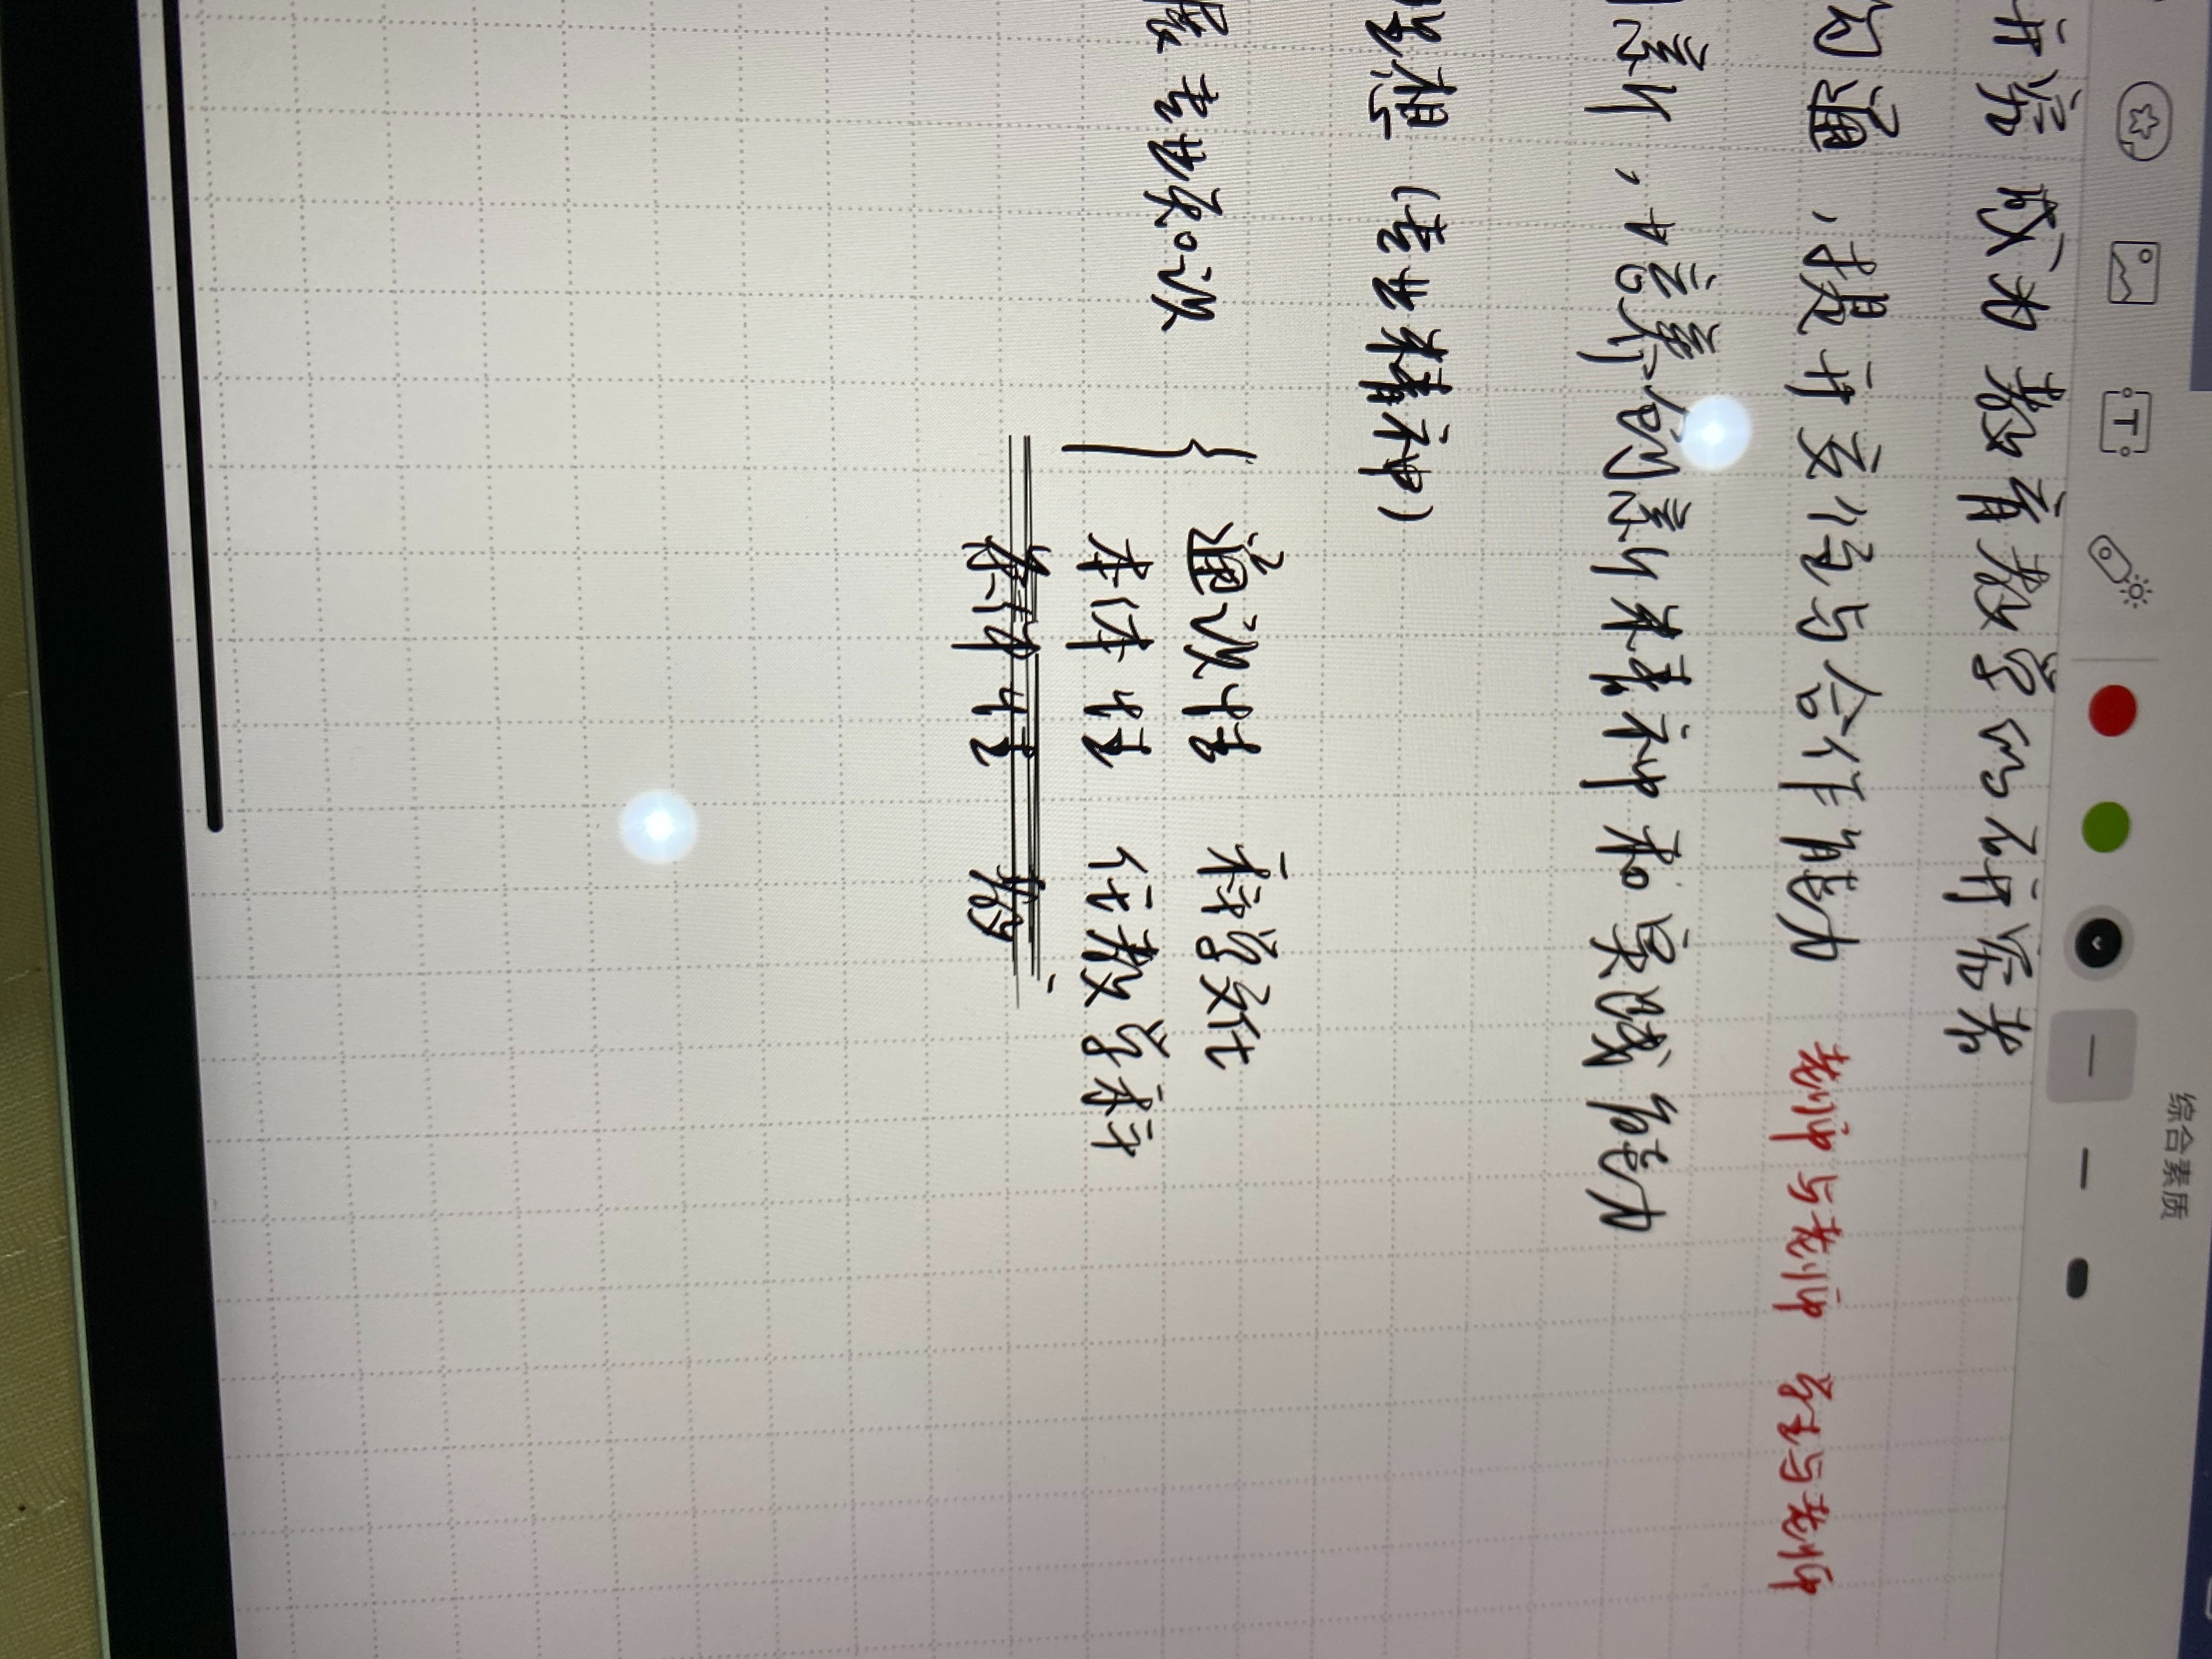 综合素质
研究 成为教育教学的研究者
沟通，提升交流与合作能力 老师与老师 学生与老师
创新，培养创新精神和实践能力
想（专业精神）
展 专业知识 { 通识性 科学文化
本体性 任教学科
条件性 教